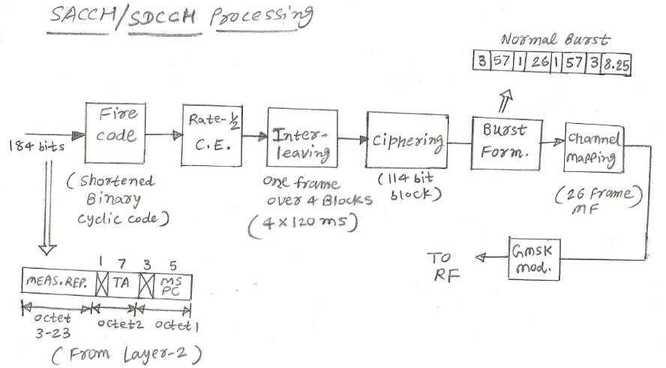 SACCH/SDCCH Processing
Normal Burst
3 57 1 26 1 57 3 8.25
184 bits
Fire code
Rate-1/2 C.E.
Inter-leaving
Ciphering
Burst Form.
Channel mapping
(Shortened Binary cyclic code)
one frame over 4 Blocks (4 x 120 ms)
(114 bit block)
(26 Frame) MF
GMSK mod.
TO RF
1 7 3 5
MEAS. REP. TA MS PC
octet 3-23 octet2 octet1
(From Layer-2)